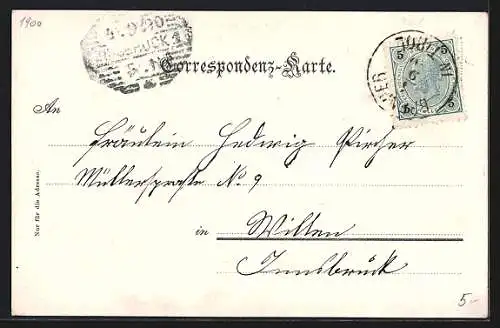 1900
INNSBRUCK 1
Correspondenz-Karte.
An
Fräulein Hedwig Pircher
Müllerstraße No. 9
in Wilten
Innsbruck
Nur für die Adresse.
5 5
5.-